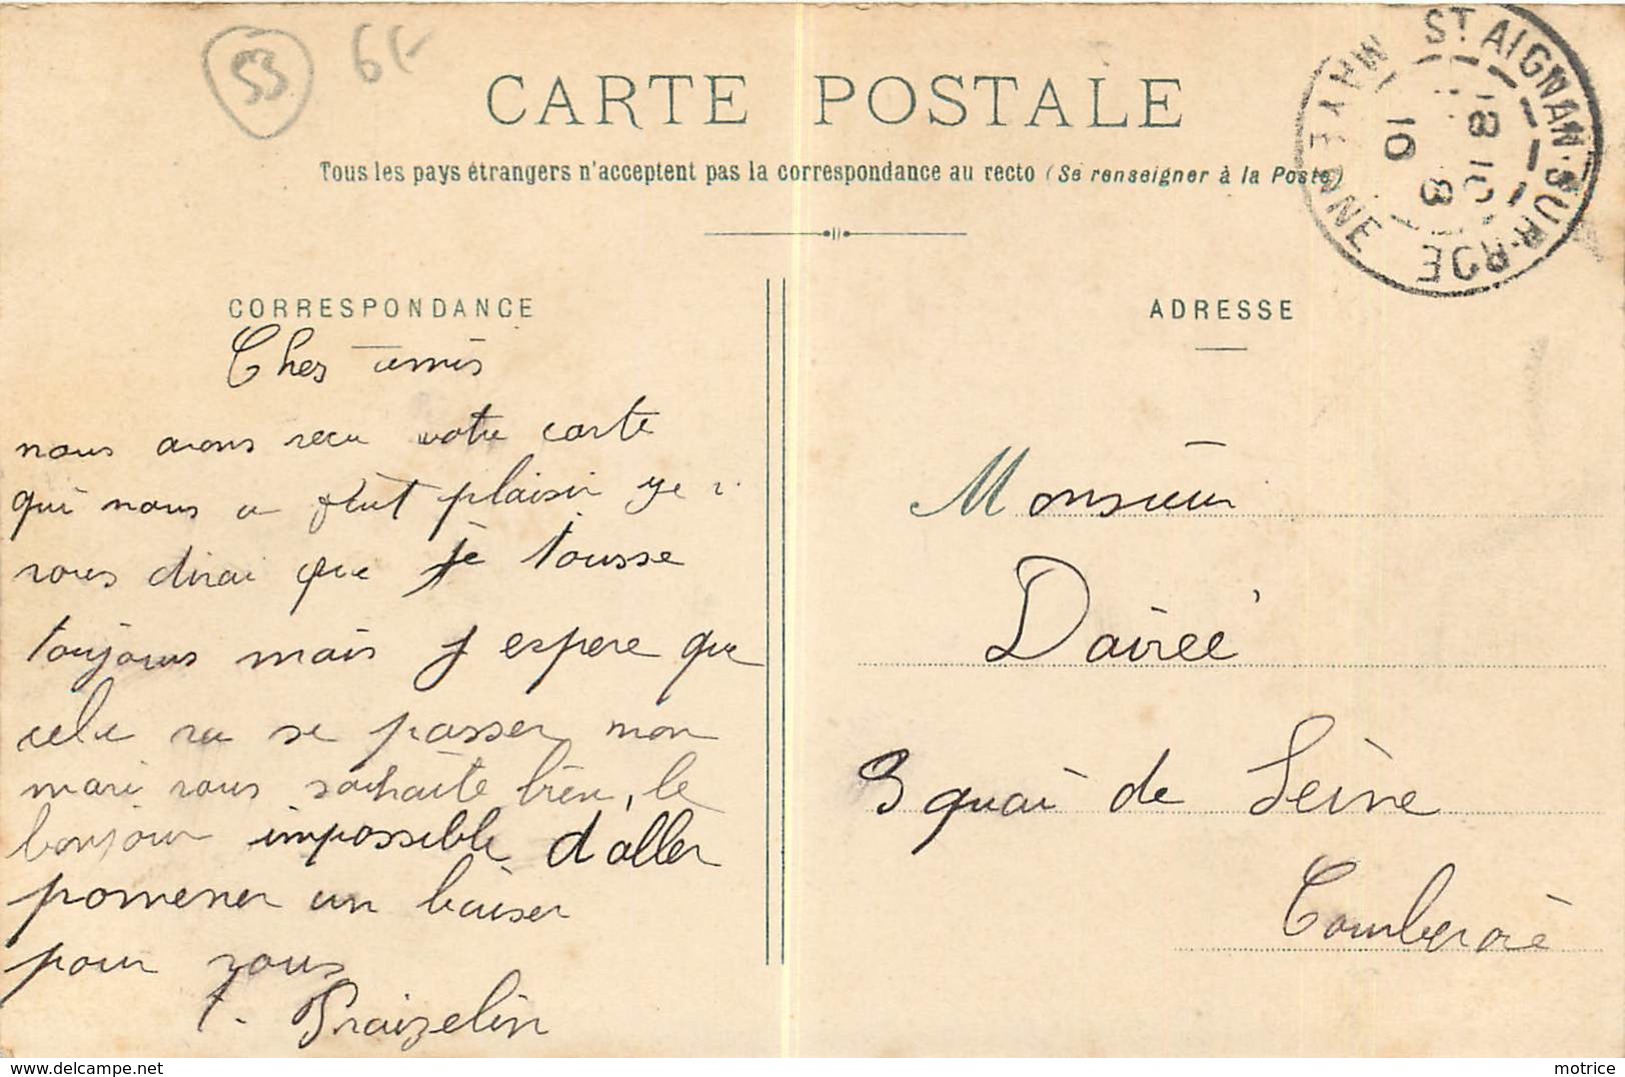 53 6F
CARTE POSTALE
Tous les pays étrangers n'acceptent pas la correspondance au recto (Se renseigner à la Poste)
ST AIGNAN-SUR-ROE
MAYENNE
18 10
8
10
CORRESPONDANCE
Chers amis
nous avons recu votre carte
qui nous a plaisir
vous dirai que je tousse
toujours mais j espere que
cela va se passer mon
mari vous souhaite bien, le
bonjour impossible d aller
pomener un baiser
pour vous
Fraizelin
ADRESSE
Monsieur
Daireé
3 quai de Seine
Courbevoie
www.delcampe.net
motrice